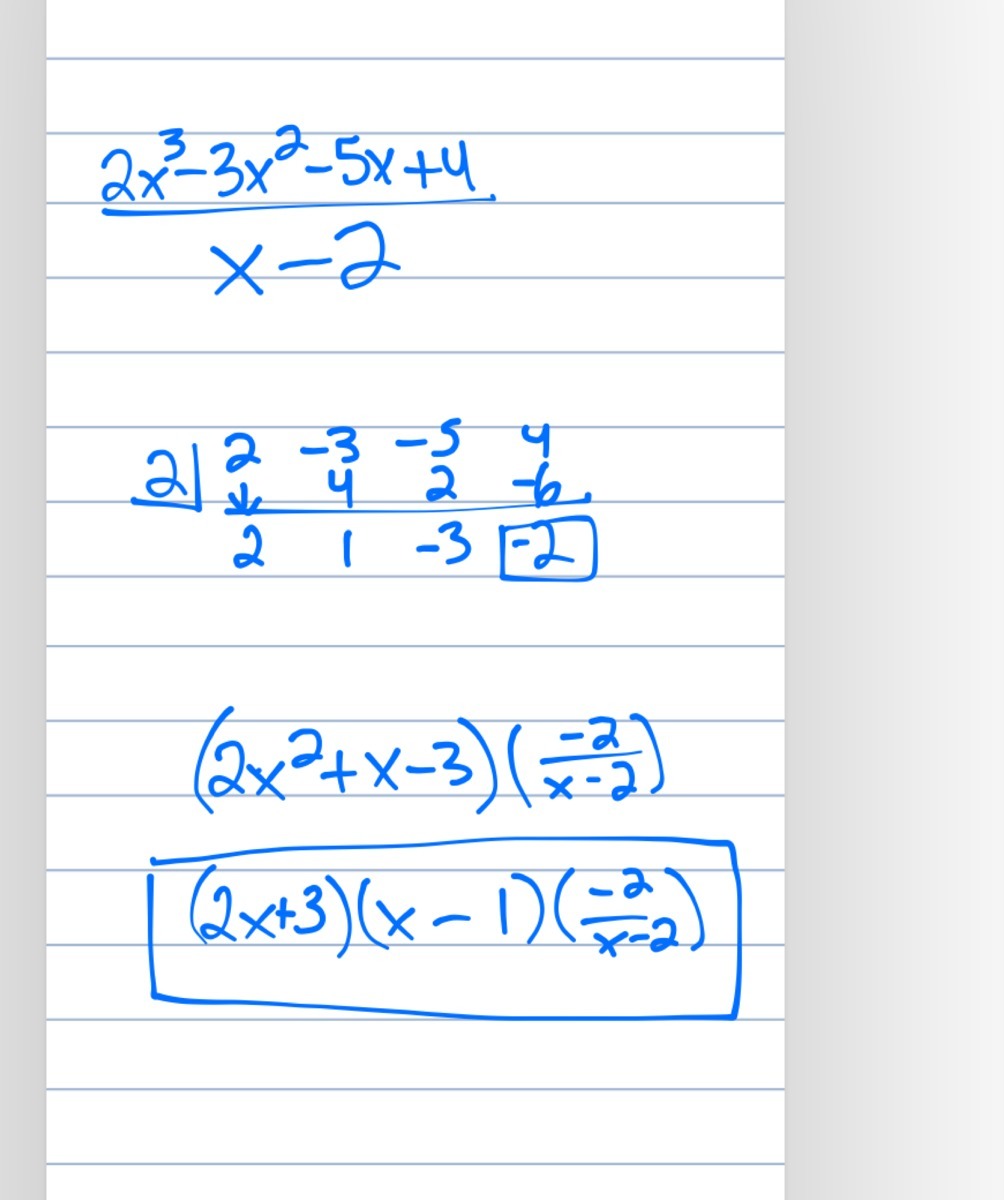 2x³-3x²-5x+4
x-2
2| 2 -3 -5 4
↓ 4 2 -6
2 1 -3 -2
(2x²+x-3)(-2/x-2)
(2x+3)(x-1)(-2/x-2)